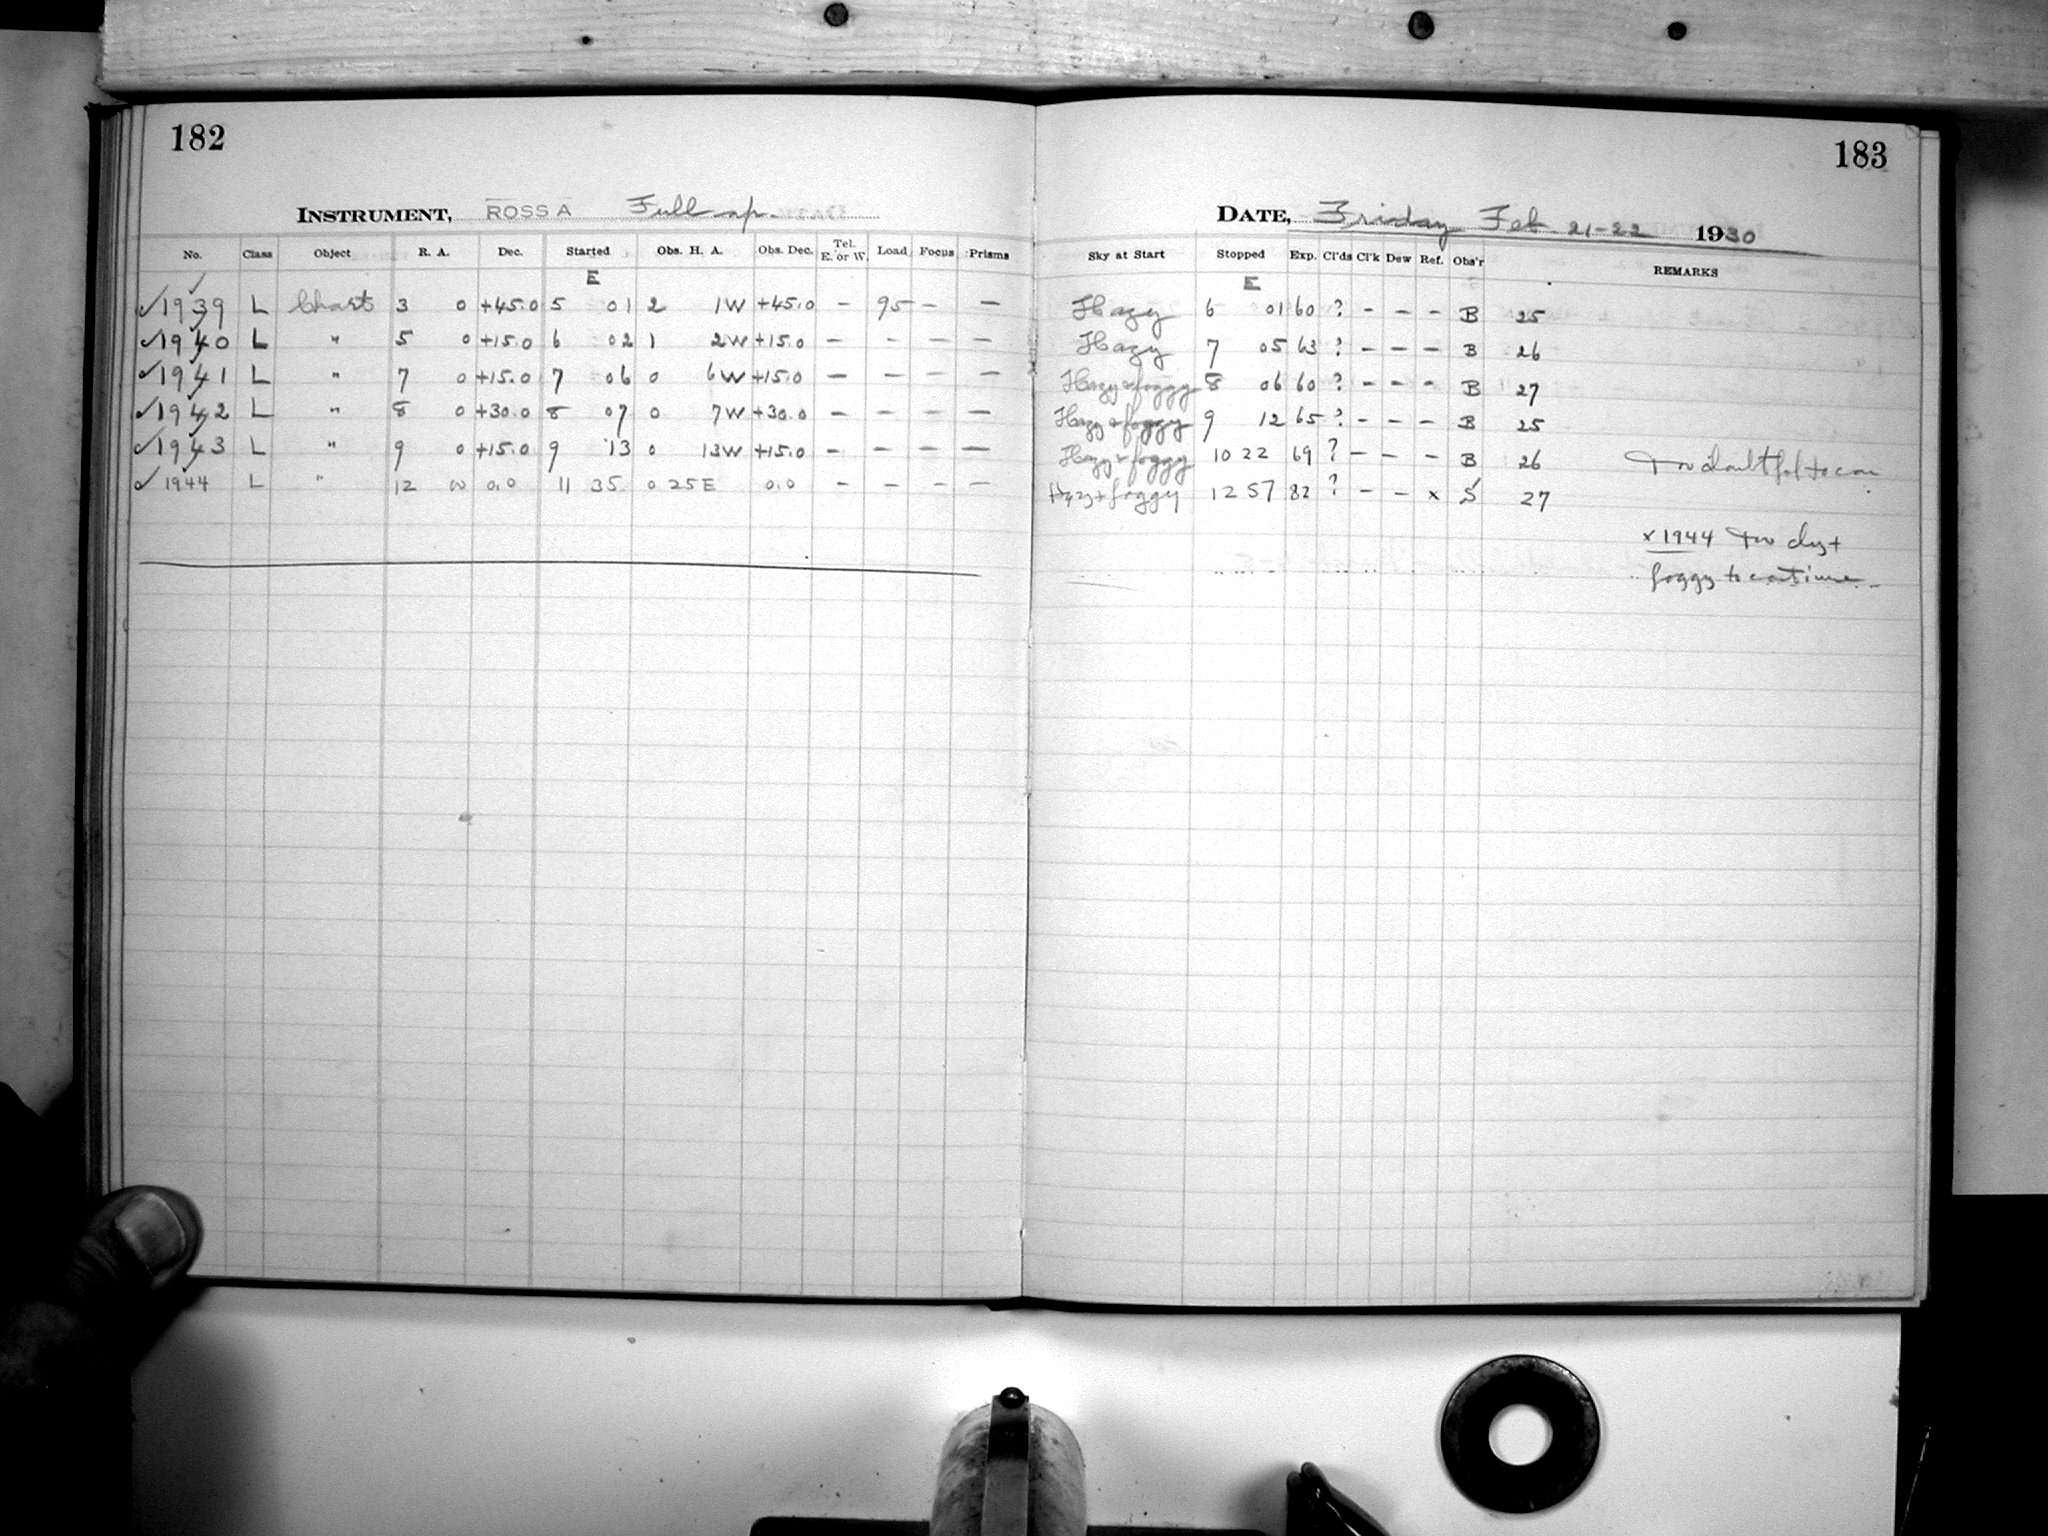 182
INSTRUMENT, ROSS A Full ap.
No. Class Object R. A. Dec. Started Obs. H. A. Obs. Dec. Tel. E. or W. Load Focus Prisms
E
✓1939 L Charts 3 0 +45.0 5 01 2 1W +45.0 - 95 - -
✓1940 L " 5 0 +15.0 6 02 1 2W +15.0 - - - -
✓1941 L " 7 0 +15.0 7 06 0 6W +15.0 - - - -
✓1942 L " 8 0 +30.0 8 07 0 7W +30.0 - - - -
✓1943 L " 9 0 +15.0 9 13 0 13W +15.0 - - - -
✓1944 L " 12 00 0.0 11 35 0 25E 0.0 - - - -
183
DATE, Friday Feb 21-22 1930
Sky at Start Stopped Exp. Cl'ds Cl'k Dew Ref. Obs'r REMARKS
E
Hazy 6 01 60 ? - - - B 25
Hazy 7 05 63 ? - - - B 26
Hazy & foggy 8 06 60 ? - - - B 27
Hazy & foggy 9 12 65 ? - - - B 25
Hazy & foggy 10 22 69 ? - - - B 26 Too doubtful to con
Hazy + foggy 12 57 82 ? - - x S 27
x 1944 Too cldy +
foggy to continue